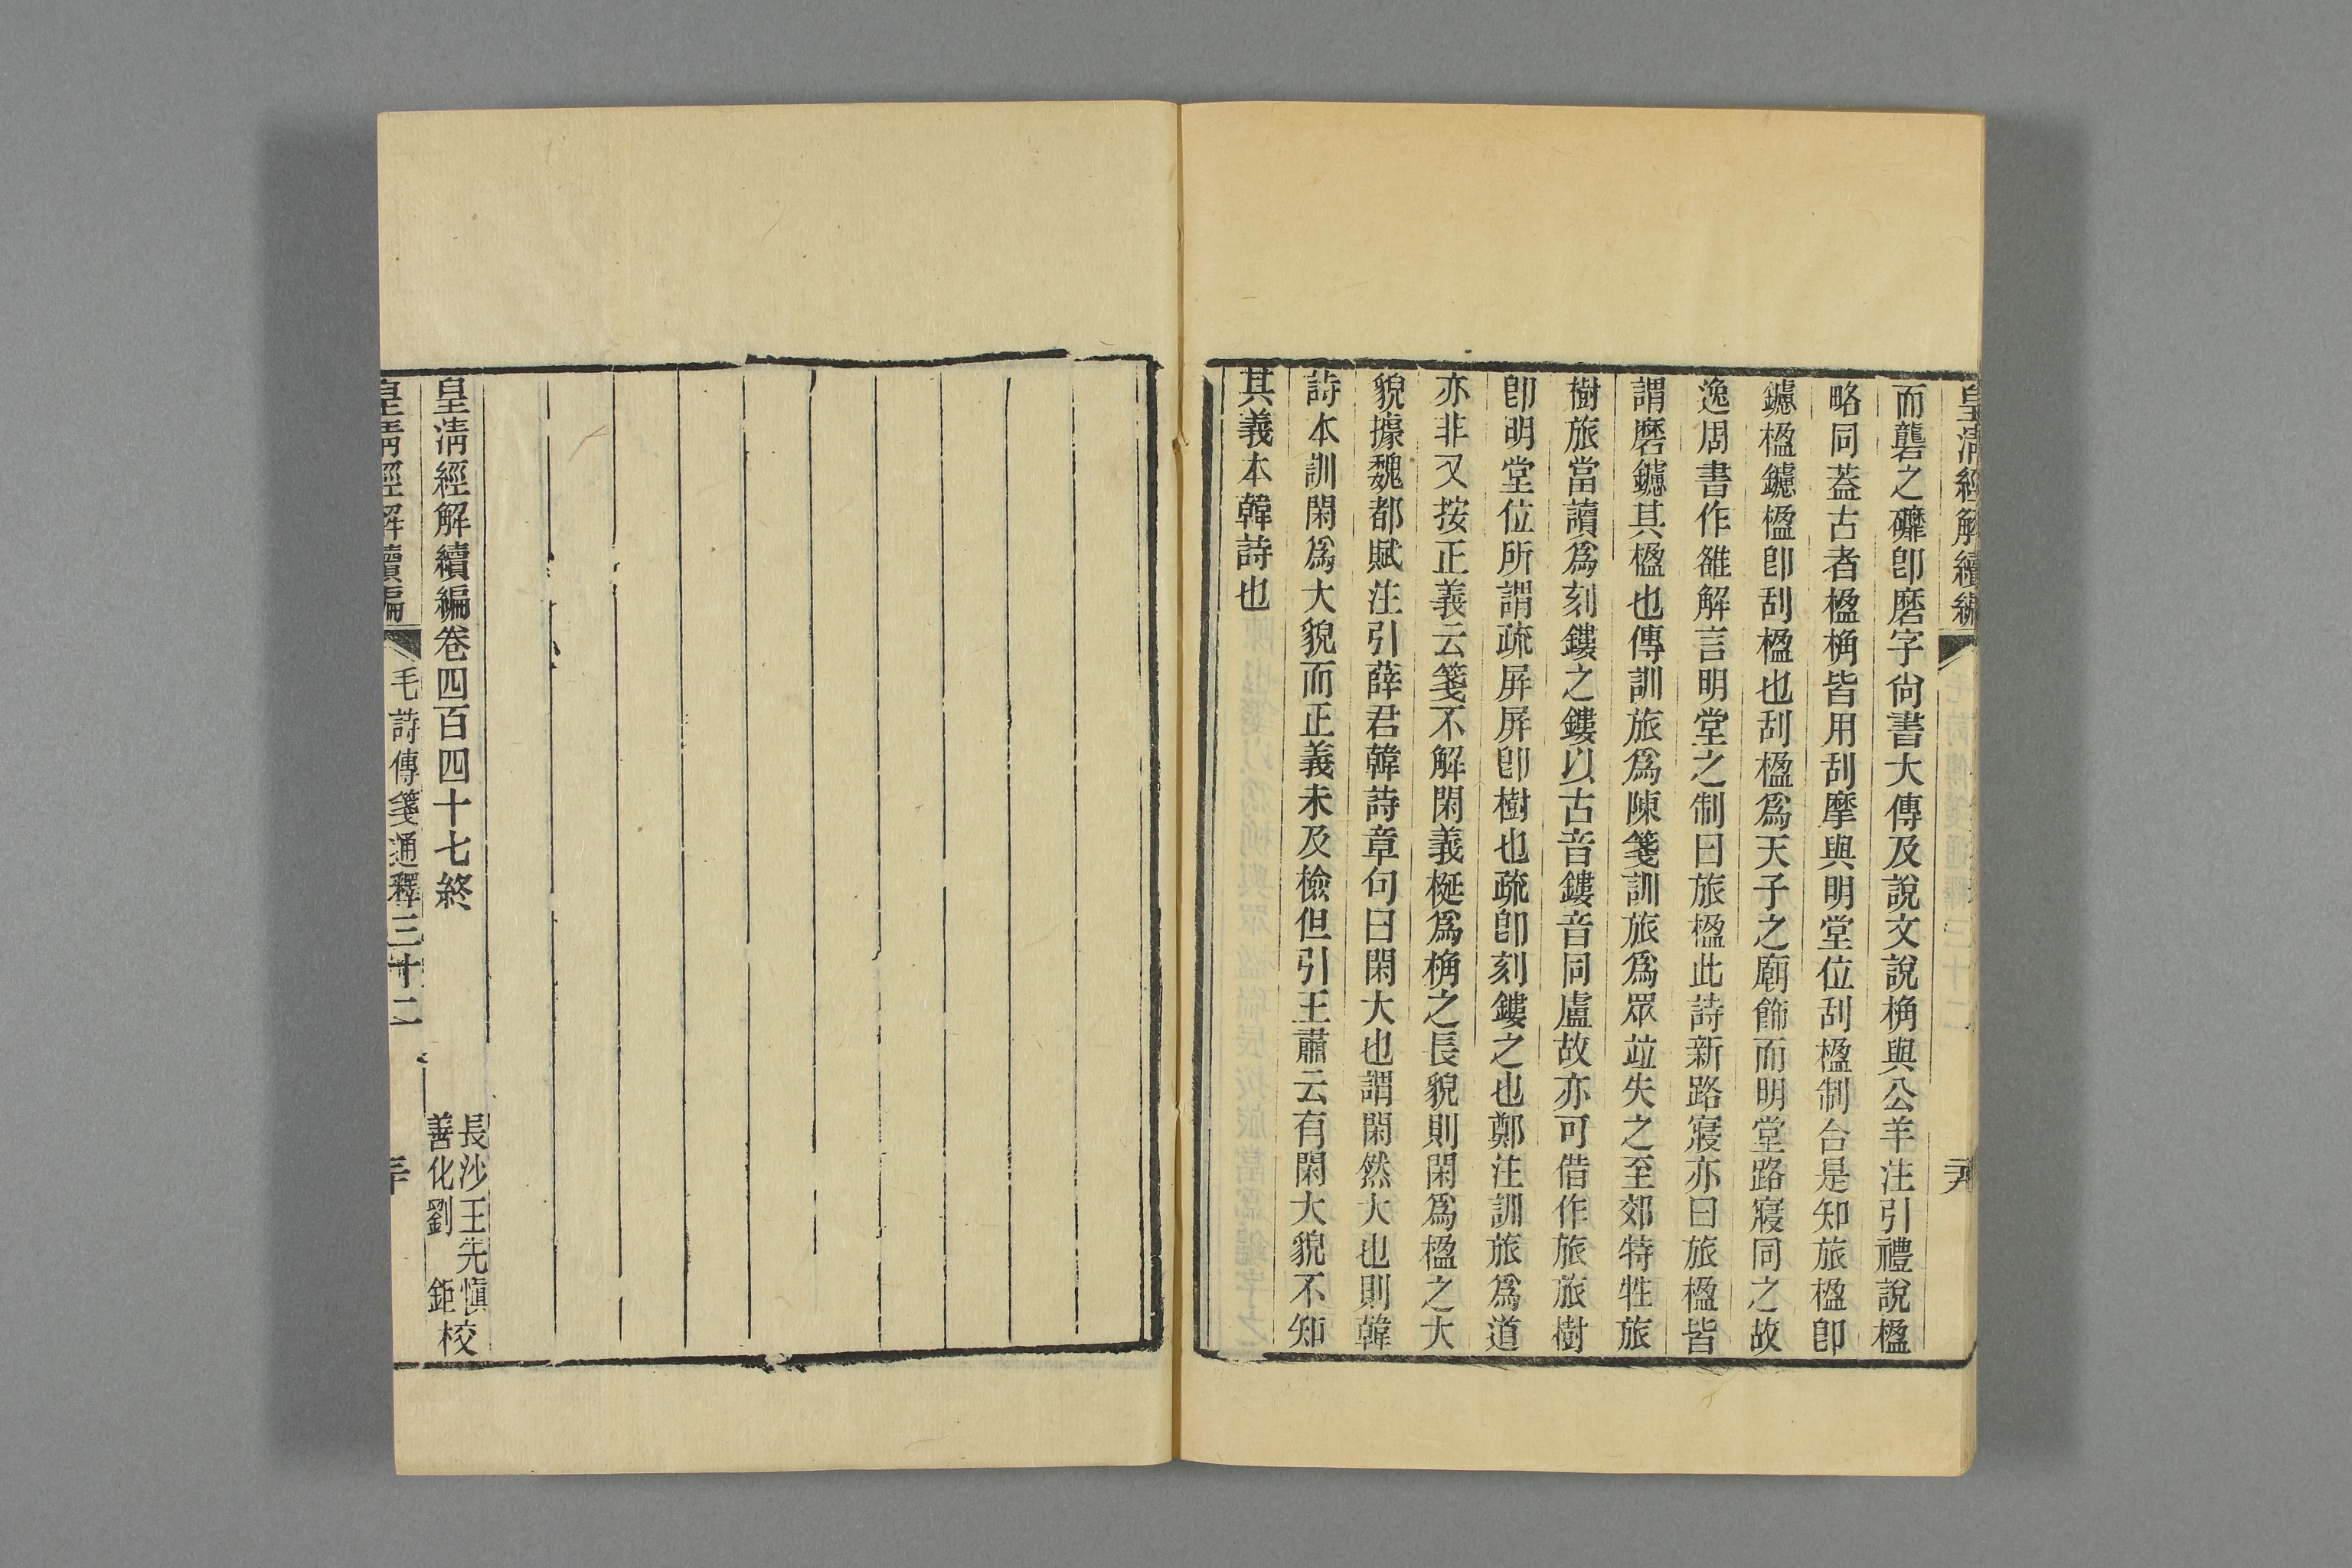 皇清經解續編
而礱之礳卽磨字尙書大傳及說文說桷與公羊注引禮說楹
略同蓋古者楹桷皆用刮摩與明堂位刮楹制合是知旅楹卽
鑢楹鑢楹卽刮楹也刮楹爲天子之廟飾而明堂路寢同之故
逸周書作雒解言明堂之制曰旅楹此詩新路寢亦曰旅楹皆
謂磨鑢其楹也傳訓旅爲陳箋訓旅爲眾竝失之至郊特牲旅
樹旅當讀爲刻鏤之鏤以古音鏤音同盧故亦可借作旅旅樹
卽明堂位所謂疏屏屏卽樹也疏卽刻鏤之也鄭注訓旅爲道
亦非又按正義云箋不解閑義梴爲桷之長貌則閑爲楹之大
貌據魏都賦注引薛君韓詩章句曰閑大也謂閑然大也則韓
詩本訓閑爲大貌而正義未及檢但引王肅云有閑大貌不知
其義本韓詩也
皇清經解續編卷四百四十七終
長沙王先愼
善化劉 鉅
校
皇清經解續編
毛詩傳箋通釋三十二